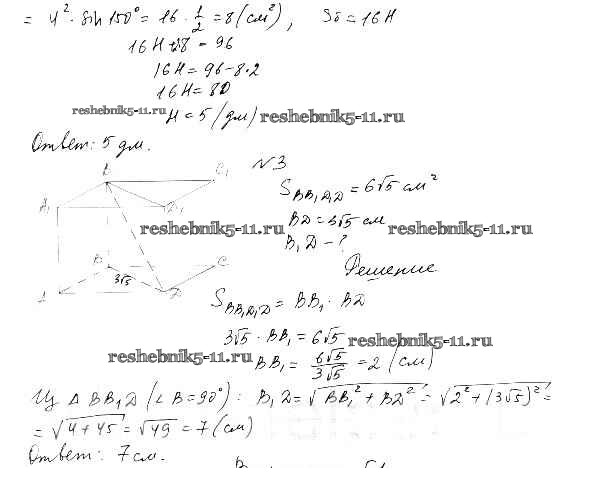 = 4² · sin 150° = 16 · 1/2 = 8 (см²), Sδ = 16H
16H + 28 = 96
16H = 96 - 8·2
16H = 80
reshebnik5-11.ru H = 5 (дм) reshebnik5-11.ru
Ответ: 5 дм.
N3
B C₁
A₁ D₁
S BB₁D₁D = 6√5 см²
reshebnik5-11.ru BD = 3√5 см reshebnik5-11.ru
B₁D - ?
Решение
B C
3√5
A D
S BB₁D₁D = BB₁ · BD
3√5 · BB₁ = 6√5
reshebnik5-11.ru
reshebnik5-11.ru BB₁ = 6√5/3√5 = 2 (см)
Из Δ BB₁D (∠B = 90°): B₁D = √BB₁² + BD² = √2² + (3√5)² =
= √4 + 45 = √49 = 7 (см)
Ответ: 7 см.